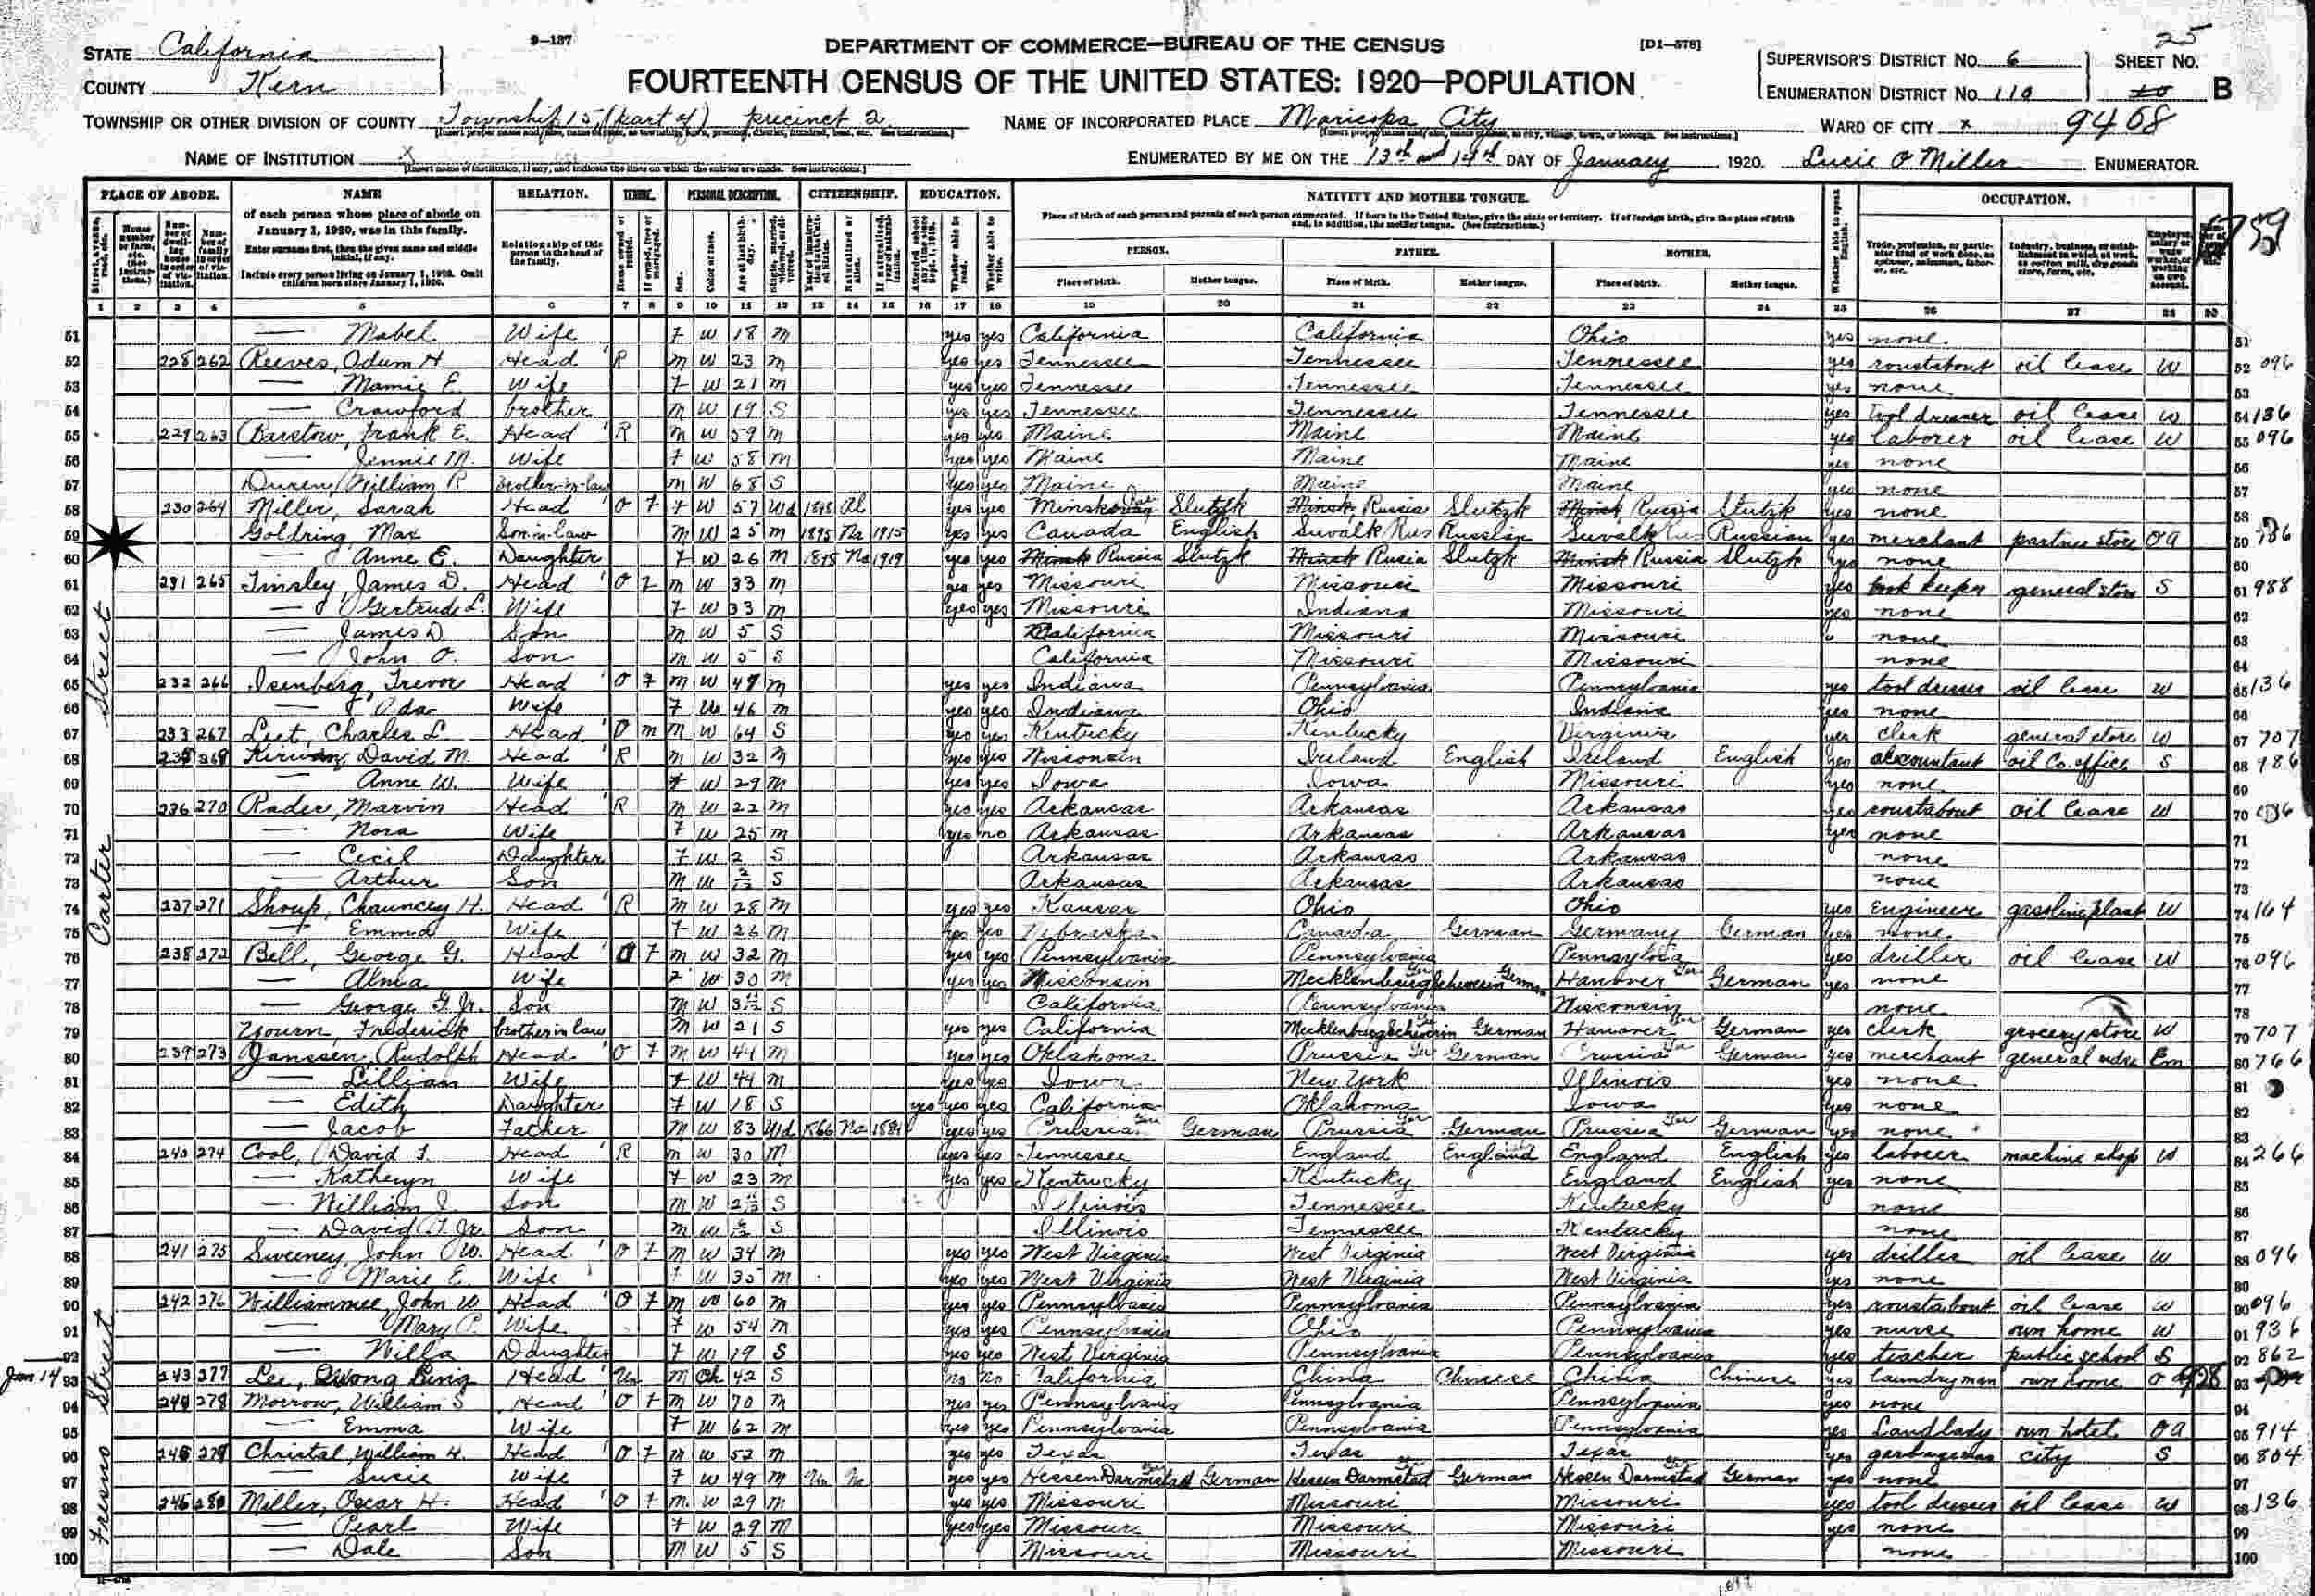 STATE California
9-137
DEPARTMENT OF COMMERCE—BUREAU OF THE CENSUS
[D1-578]
25
COUNTY Kern
FOURTEENTH CENSUS OF THE UNITED STATES: 1920—POPULATION
SUPERVISOR'S DISTRICT No. 6 SHEET No.
ENUMERATION DISTRICT No. 110 B
TOWNSHIP OR OTHER DIVISION OF COUNTY Township 15, (part of) precinct 2 NAME OF INCORPORATED PLACE Maricopa City WARD OF CITY x 9468
NAME OF INSTITUTION x ENUMERATED BY ME ON THE 13th and 14th DAY OF January, 1920. Lucie O Miller ENUMERATOR.
PLACE OF ABODE. NAME RELATION. TENURE. PERSONAL DESCRIPTION. CITIZENSHIP. EDUCATION. NATIVITY AND MOTHER TONGUE. OCCUPATION.
of each person whose place of abode on January 1, 1920, was in this family.
Enter surname first, then the given name and middle initial, if any.
Include every person living on January 1, 1920. Omit children born since January 1, 1920.
Relationship of this person to the head of the family.
Place of birth of each person and parents of each person enumerated. If born in the United States, give the state or territory. If of foreign birth, give the place of birth and, in addition, the mother tongue. (See instructions.)
PERSON. FATHER. MOTHER.
Place of birth. Mother tongue. Place of birth. Mother tongue. Place of birth. Mother tongue.
1 2 3 4 5 6 7 8 9 10 11 12 13 14 15 16 17 18 19 20 21 22 23 24 25 26 27 28 29
51 — Mabel Wife F W 18 M yes yes California California Ohio yes none 51
52 228 262 Reeves, Odum H. Head R M W 23 M yes yes Tennessee Tennessee Tennessee yes roustabout oil lease W 52 096
53 — Mamie E. Wife F W 21 M yes yes Tennessee Tennessee Tennessee yes none 53
54 — Crawford brother M W 19 S yes yes Tennessee Tennessee Tennessee yes tool dresser oil lease W 54 136
55 229 263 Barstow, Frank E. Head R M W 59 M yes yes Maine Maine Maine yes laborer oil lease W 55 096
56 — Jennie M. Wife F W 58 M yes yes Maine Maine Maine yes none 56
57 Duren, William P. Brother-in-law M W 68 S yes yes Maine Maine Maine yes none 57
58 230 264 Miller, Sarah Head O F F W 57 Wd 1898 Al yes yes Minsk Slutzk Minsk, Russia Slutzk Minsk, Russia Slutzk yes none 58
59 Goldring, Max Son-in-law M W 25 M 1895 Na 1915 yes yes Canada English Suvalk Rus Russian Suvalk Rus Russian yes merchant partner store OA 59
60 — Anne E. Daughter F W 26 M 1898 Na 1919 yes yes Minsk Russia Slutzk Minsk Russia Slutzk Minsk Russia Slutzk yes none 60
61 231 265 Tinsley, James D. Head O F M W 33 M yes yes Missouri Missouri Missouri yes book keeper general store S 61 988
62 — Gertrude L. Wife F W 33 M yes yes Missouri Indiana Missouri yes none 62
63 — James D. Son M W 5 S California Missouri Missouri none 63
64 — John O. Son M W 5 S California Missouri Missouri none 64
65 232 266 Isenberg, Trevor Head O F M W 47 M yes yes Indiana Pennsylvania Pennsylvania yes tool dresser oil lease W 65 136
66 — Ada Wife F W 46 M yes yes Indiana Ohio Indiana yes none 66
67 233 267 Leet, Charles L. Head O M M W 64 S yes yes Kentucky Kentucky Virginia yes clerk general store W 67 707
68 235 269 Kirwan, David M. Head R M W 32 M yes yes Wisconsin Ireland English Ireland English yes accountant oil Co. office S 68
69 — Anne W. Wife F W 29 M yes yes Iowa Iowa Missouri yes none 69
70 236 270 Rader, Marvin Head R M W 22 M yes yes Arkansas Arkansas Arkansas yes roustabout oil lease W 70
71 — Nora Wife F W 25 M yes no Arkansas Arkansas Arkansas yes none 71
72 — Cecil Daughter F W 2 S Arkansas Arkansas Arkansas none 72
73 — Arthur Son M W S Arkansas Arkansas Arkansas none 73
74 237 271 Shoup, Chauncey H. Head R M W 28 M yes yes Kansas Ohio Ohio yes Engineer gasoline plant W 74 164
75 — Emma Wife F W 26 M yes yes Nebraska Canada German Germany German yes none 75
76 238 272 Bell, George G. Head O F M W 32 M yes yes Pennsylvania Pennsylvania Pennsylvania yes driller oil lease W 76 096
77 — Alma Wife F W 30 M yes yes Wisconsin Mecklenburg Schwerin German Hanover Ger German yes none 77
78 — George G. Jr. Son M W 3 S California Pennsylvania Wisconsin none 78
79 Yourn, Frederick brother in law M W 21 S yes yes California Mecklenburg Schwerin German Hanover Ger German yes clerk grocery store W 79 707
80 239 273 Janssen, Rudolph Head O F M W 44 M yes yes Oklahoma Prussia Ger German Prussia Ger German yes merchant general mdse Em 80 766
81 — Lillian Wife F W 44 M yes yes Iowa New York Illinois yes none 81
82 — Edith Daughter F W 18 S yes yes yes California Oklahoma Iowa yes none 82
83 — Jacob Father M W 83 Wd 1866 Na 1884 yes yes Prussia Ger German Prussia Ger German Prussia Ger German yes none 83
84 240 274 Cool, David T. Head R M W 30 M yes yes Tennessee England English England English yes laborer machine shop W 84 266
85 — Katheryn Wife F W 23 M yes yes Kentucky Kentucky England English yes none 85
86 — William J. Son M W 2 S Illinois Tennessee Kentucky none 86
87 — David T. Jr. Son M W S Illinois Tennessee Kentucky none 87
88 241 275 Sweeney, John W. Head O F M W 34 M yes yes West Virginia West Virginia West Virginia yes driller oil lease W 88 096
89 — Marie E. Wife F W 35 M yes yes West Virginia West Virginia West Virginia yes none 89
90 242 276 Williammee, John W Head O F M W 60 M yes yes Pennsylvania Pennsylvania Pennsylvania yes roustabout oil lease W 90 096
91 — Mary C. Wife F W 54 M yes yes Pennsylvania Ohio Pennsylvania yes nurse own home W 91 936
92 — Willa Daughter F W 19 S yes yes West Virginia Pennsylvania Pennsylvania yes teacher public school S 92 862
Jan 14 93 243 277 Lee, Quong Bing Head Un M Ch 42 S no no California China Chinese China Chinese yes laundryman own home OA 928 93
94 244 278 Morrow, William S Head O F M W 70 M yes yes Pennsylvania Pennsylvania Pennsylvania yes none 94
95 — Emma Wife F W 62 M yes yes Pennsylvania Pennsylvania Pennsylvania yes Landlady own hotel OA 95 914
96 245 279 Christal, William H. Head O F M W 52 M yes yes Texas Texas Texas yes garbageman city S 96 804
97 — Susie Wife F W 49 M Un Na yes yes Hessen Darmstad Ger German Hessen Darmstad Ger German Hessen Darmstad Ger German yes none 97
98 246 280 Miller, Oscar H. Head O F M W 29 M yes yes Missouri Missouri Missouri yes tool dresser oil lease W 98 136
99 — Pearl Wife F W 29 M yes yes Missouri Missouri Missouri yes none 99
100 — Dale Son M W 5 S Missouri Missouri Missouri none 100
Carter Street
Fresno Street